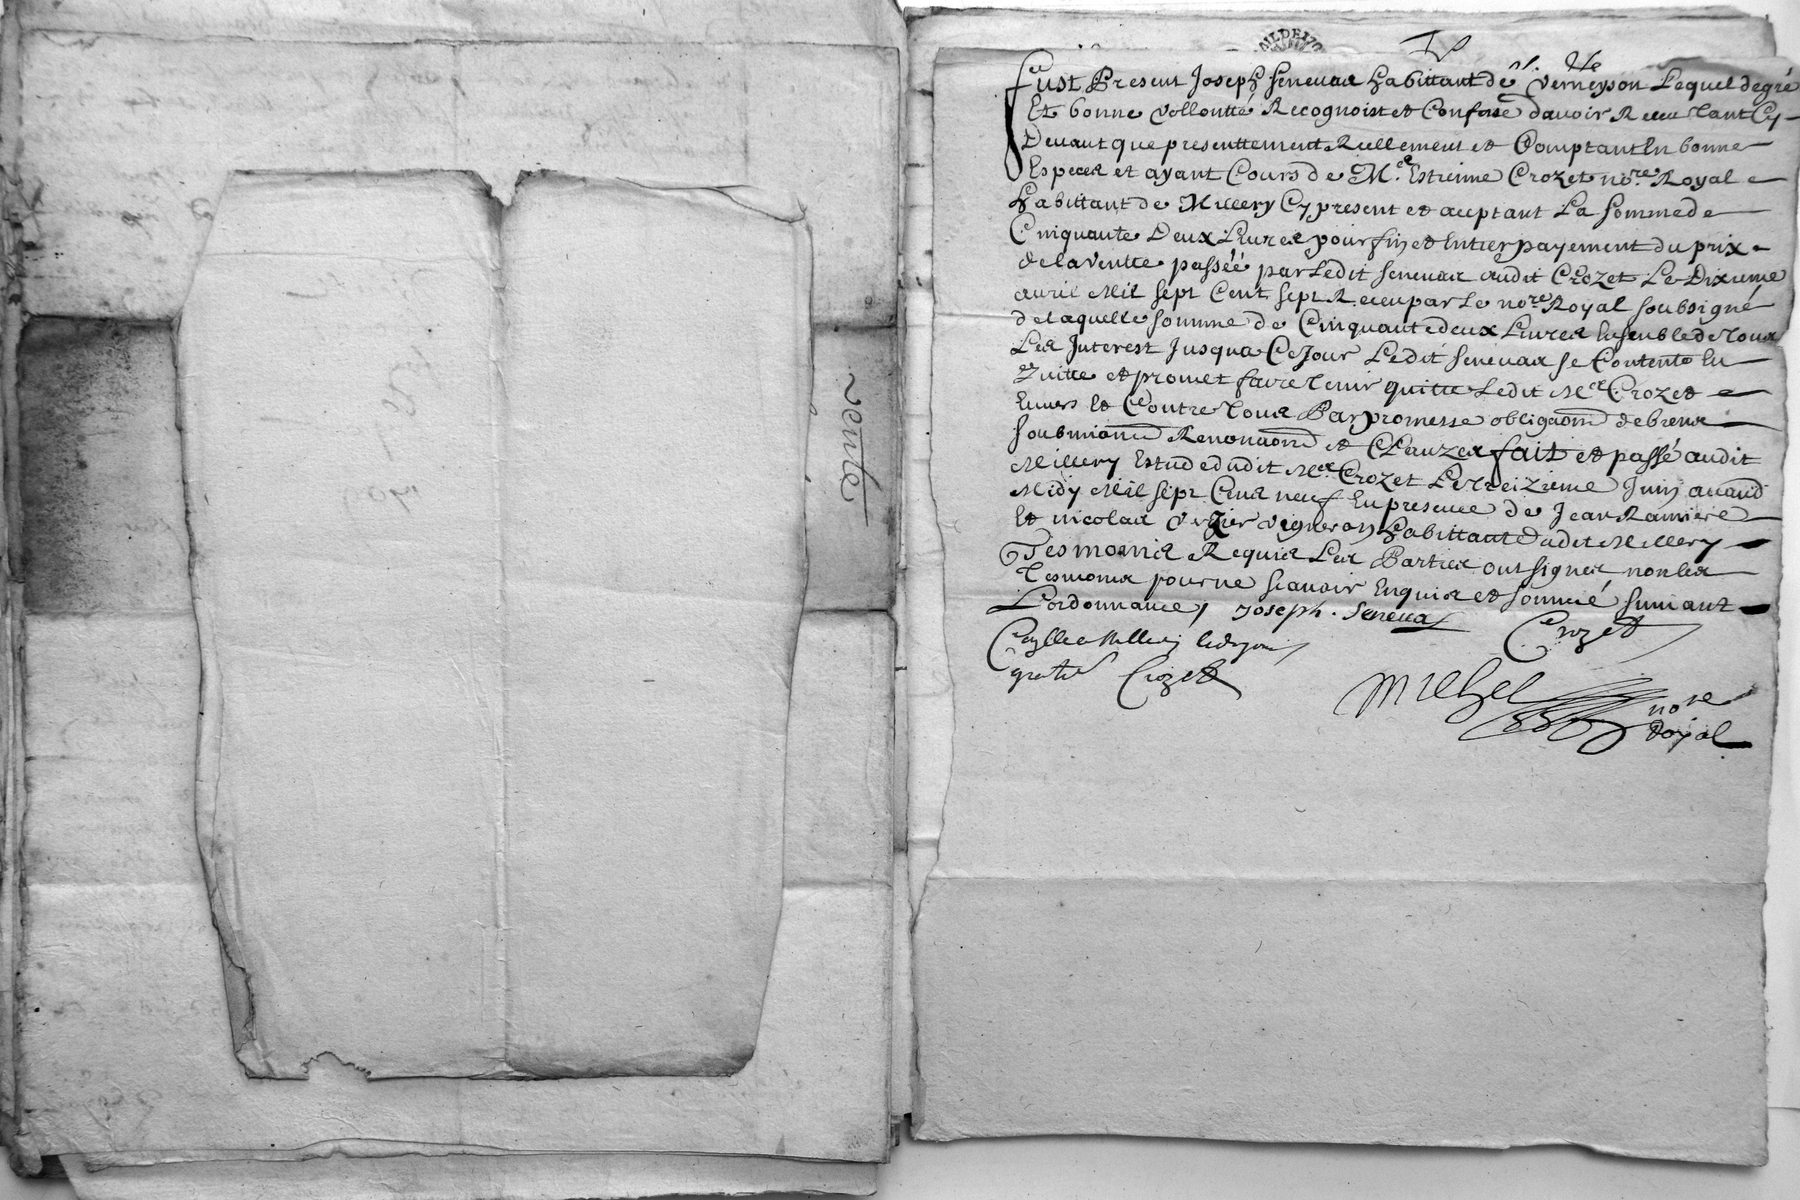 vente
Fust Present Joseph Senevas habittant de Verneyson Lequel de gré
Et bonne vollontté Recognoist et Confesse davoir Receu tant Cy
Devant que presenttement Reellement et Comptant En bonne
Especes et ayant Cours de Me. Estienne Crozet nore Royal
habittant de Millery Cy present et aceptant La somme de
Cinquante Deux Livres pour fin et Entier payement du prix
de la ventte passéé par Ledit senevas audit Crozet Le Dixieme
avril Mil sept Cent sept Receu par Le nore Royal soubsigné
de laquelle somme de Cinquante deux Livres Ensemble de tous
Les Interest Jusqua Ce Jour Ledit senevas se Contente En
quitte et promet faire tenir quitte Ledit Me Crozet
Envers Et Contre tous Par promesse obligaon de biens
soubmions Renonaons et Clauzes fait et passé audit
Millery Estude dudit Me Crozet Le treizieme Juin avand
Midy Mil sept Cens neuf En presence de Jean Ramiere
Et nicolas Verzier vigneron habittants dudit Millery
Tesmoins Requis Les Parties ont signés non les
tesmoins pour ne scavoir Enquis et sommé suivant
Lordonnance, Joseph. Seneva
Crozet
Crozet
Michel nore
Royal